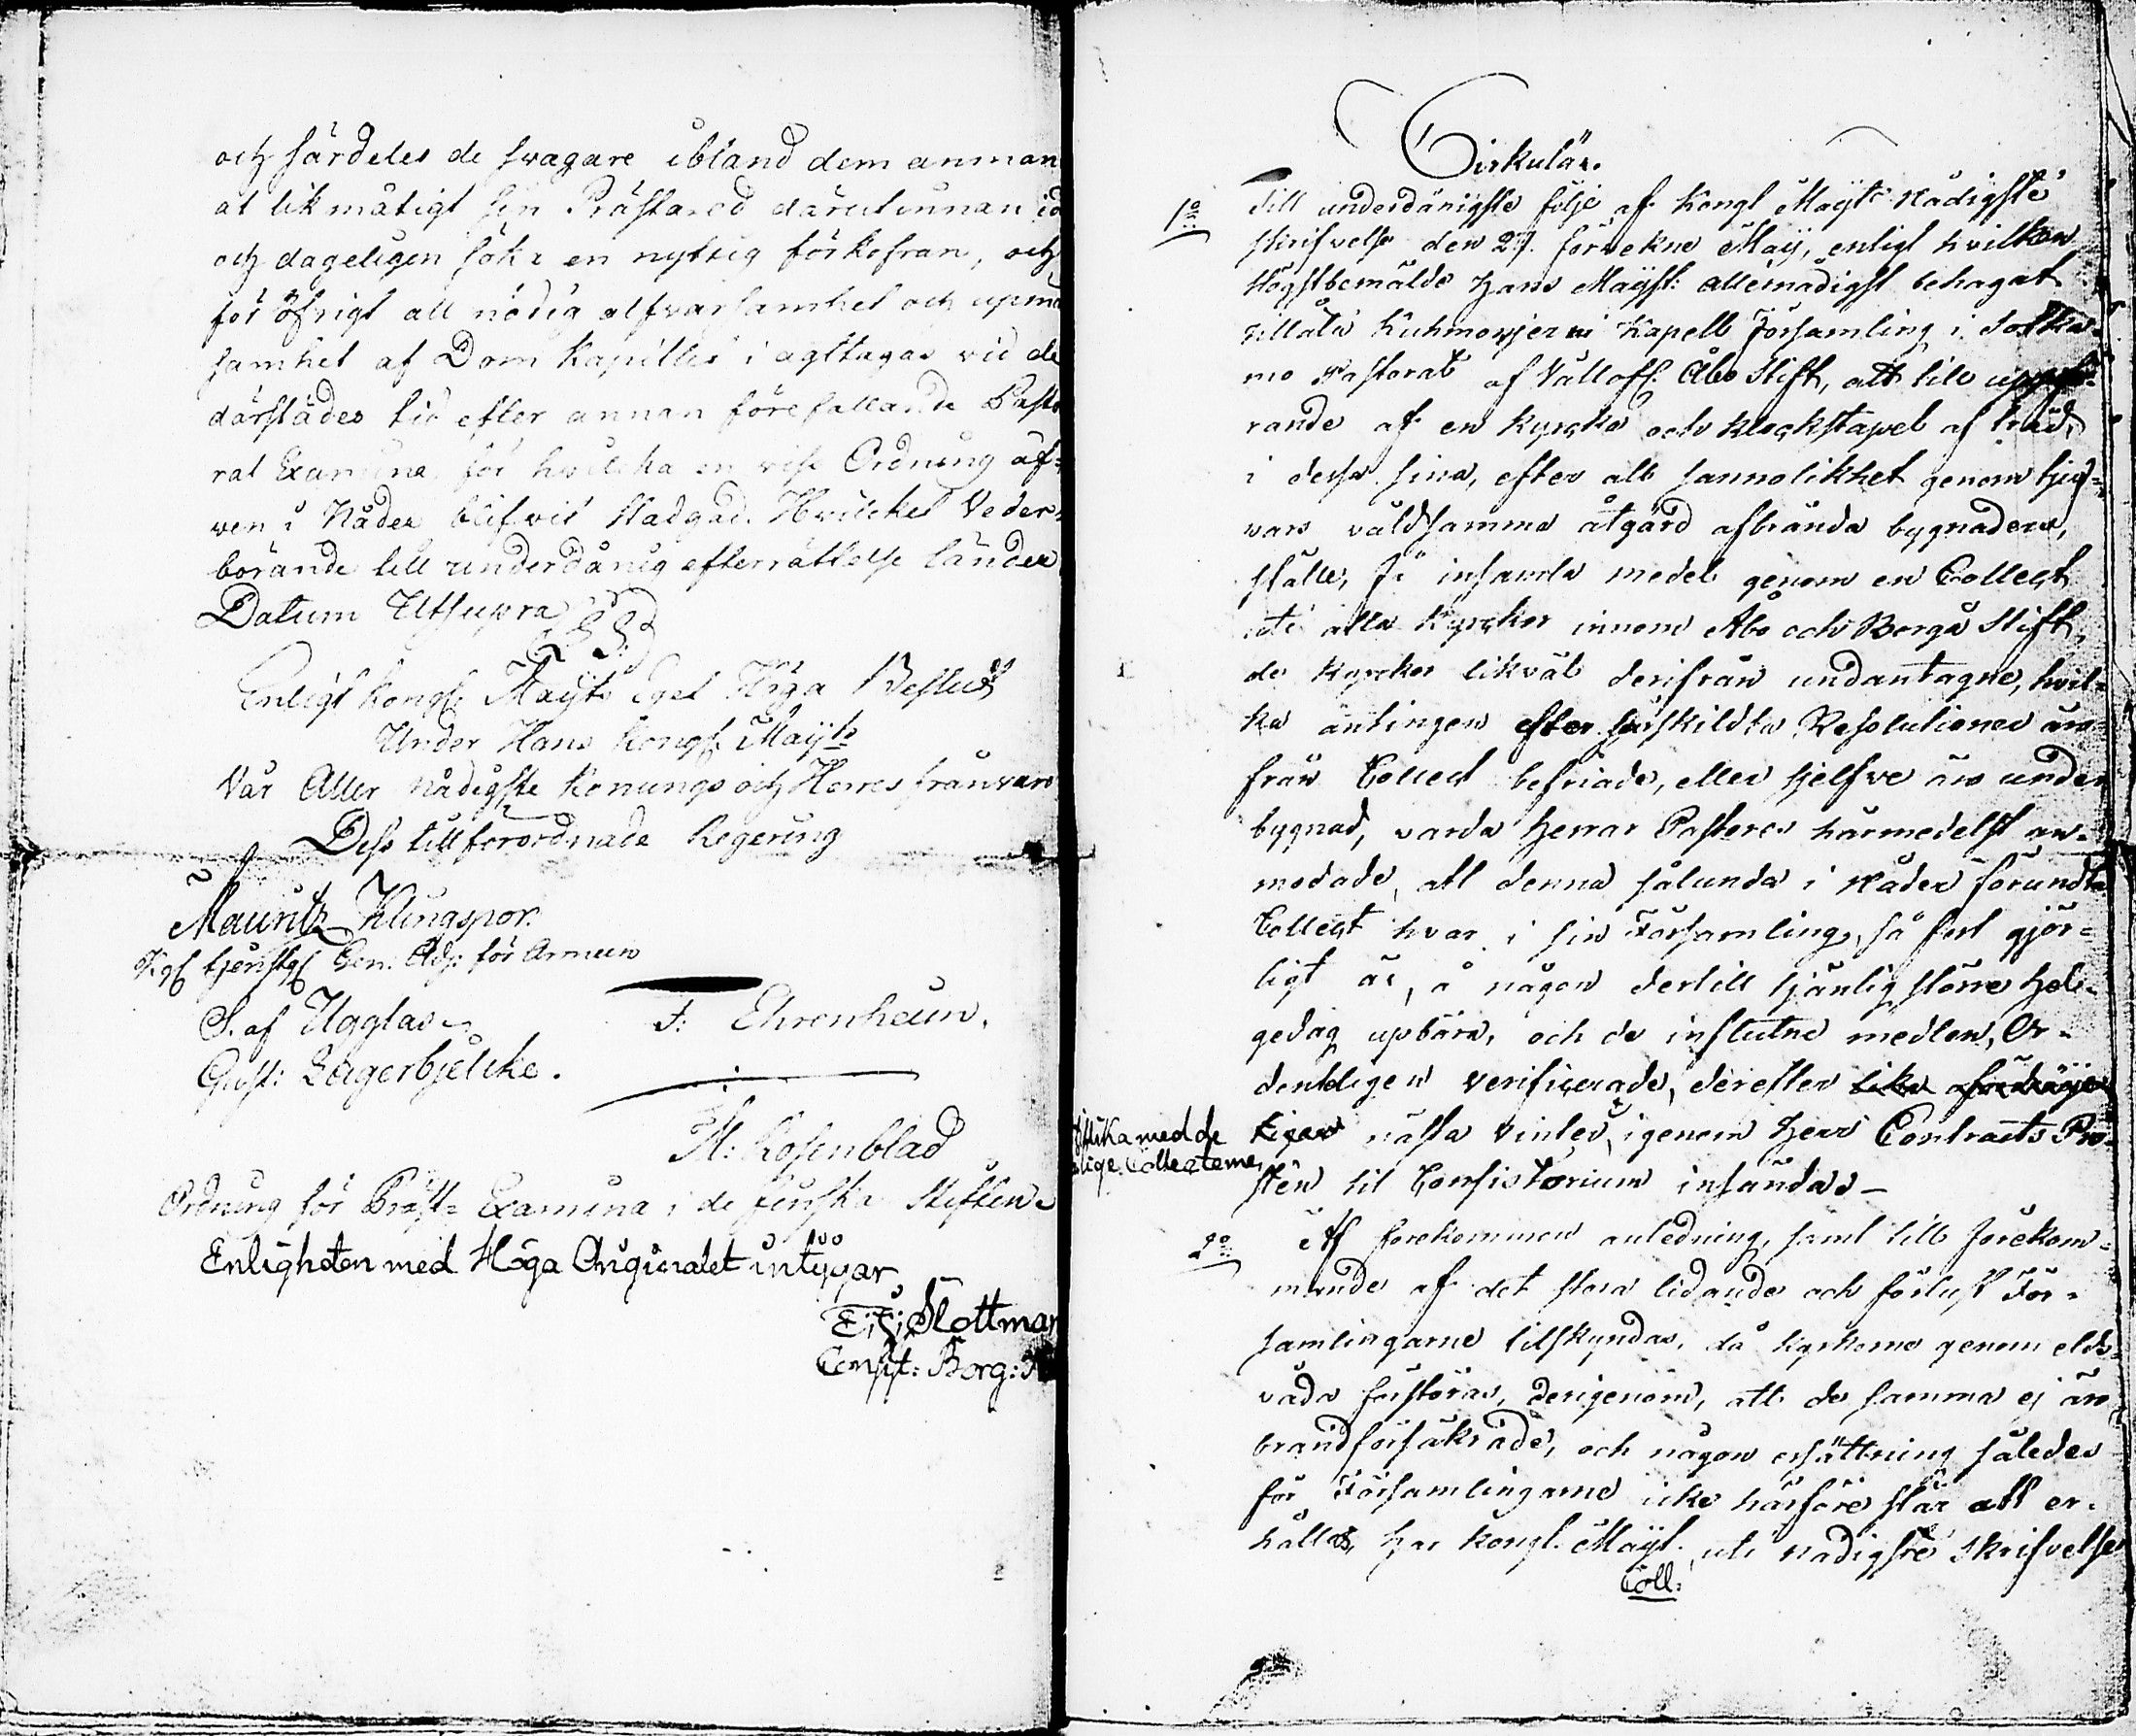 och särdeles de svagare ibland dem anman
at likmätigt sin Prästa-ed därutinnan
och dageligen söka en nyttig förkofran, och
för öfrigt all nödig alfvarsamhet och upm
samhet af Dom Kapitlet i agttagas vid de
därstädes tid efter annan förefallande Pasto
ral Examina, för hvilcka en viss Ordning äf-
ven i Nåder blifvit stadgad. Hvilcket Veder-
börande till underdånig efterrättelse länder
Datum Utsupra
Enligt Kongl Maijts Eget Höga Beslut
Under Hans Kongl Maijts
Vår Aller Nådigste Konungs och Herres frånvaro
Dess tillförordnade Regering
Mauritz Klingspor.
Kgl tjenstgl Gen: Adj: för Armeen
S. af Ugglas
F: Ehrenheim.
Gust: Lagerbjelcke.
M: Rosenblad
Ordning för Präst-Examina i de finska Stiften
Enligheten med Höga Originalet intygar
Slottman
Consist: Borg:
Cirkulär.
1o Till underdånigste följe af Kongl Maijts Nådigste
skrifvelse den 27.förvekne Maij, enligt hvilken
Högstbemälde Hans Maijst: allernådigst behagat
tillåta Kuhmoniemi Kapell Församling i Sotka-
mo Pastorat af Åbo Stift, att till uppfö-
rande af en kyrcka och klockstapel af träd,
i dessa sina, efter all sannolikhet genom tju-
vars våldsamma åtgärd afbrända bygnaders,
ställe, få insamla medel genom en Collegt
uti alla kyrckor innom Åbo och Borgå Stift,
de kyrckor likväl derifrån undantagne, hvil-
ka äntingen efter särskildta Resolutioner äro
från Collect befriade, eller sjelfve äro under
bygnad, varda Herrar Pastores härmedelst an-
modade, att denna sålunda i Nåder förundta
Collegt hvar i sin Församling, så fort gjör-
ligt är, å någon dertill tjänlig större Hel-
gedag upbära, och de influtne medlen, Or-
denteligen verificerade, derefter lika
tillika med de
Collecterne,
nästa Vinter, igenom Herr Contracts Pro-
sten til Consistorium insändas
2o Af förekommen anledning, samt till förekom-
mande af det stora lidande och förlust För-
samlingarne tilskyndas, då kyrkorne genom elds-
våda förstöras, derigenom, att de samma ej äro
brandförsäkrade, och någon ersättning således
för Församlingarne icke härföre står att er-
hållas, har Kongl. Maijt. uti nådigste skrifvelse
Coll: